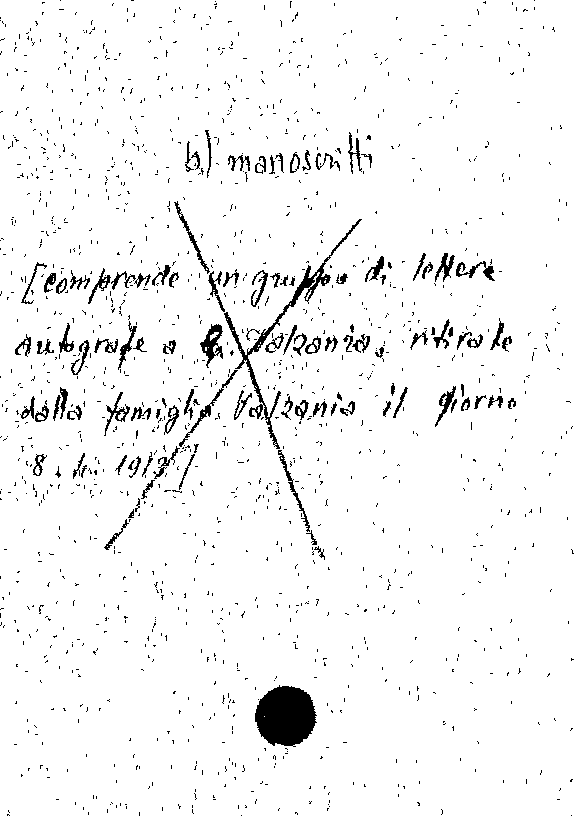 b) manoscritti
[comprende un gruppo di lettere
autografe a E. Valzania, ritirate
dalla famiglia Valzania il giorno
8. 1913]